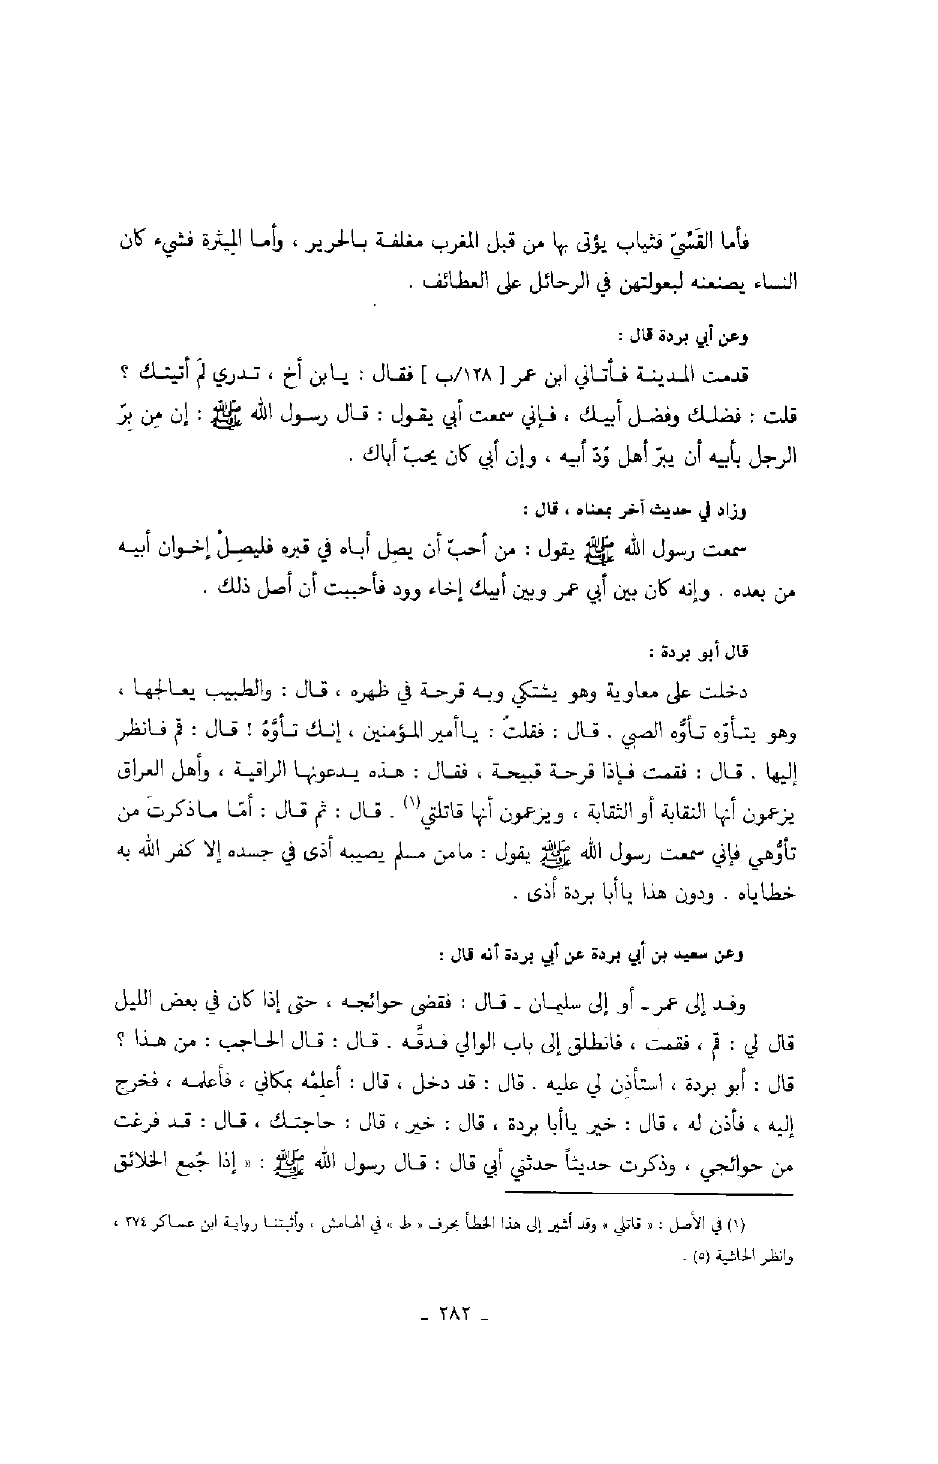 فأما القَسِّيّ فثياب يؤتى بها من قبل المغرب مغلفة بالحرير ، وأما الميثرة فشيء كان
النساء يصنعنه لبعولتهن في الرحائل على العطائف .
وعن أبي بردة قال :
قدمت المدينة فأتاني ابن عمر [ ١٢٨/ب ] فقال : يابن أخ ، تدري لمَ أتيتك ؟
قلت : فضلك وفضل أبيك ، فإني سمعت أبي يقول : قال رسول الله ﷺ : إن مِن بِرّ
الرجل بأبيه أن يبرّ أهل وُدّ أبيه ، وإن أبي كان يحبّ أباك .
وزاد في حديث آخر بمعناه ، قال :
سمعت رسول الله ﷺ يقول : من أحبّ أن يصِل أباه في قبره فليصِلْ إخوان أبيه
من بعده . وإنه كان بين أبي عمر وبين أبيك إخاء وود فأحببت أن أصل ذلك .
قال أبو بردة :
دخلت على معاوية وهو يشتكي وبه قرحة في ظهره ، قال : والطبيب يعالجها ،
وهو يتأوّه تأوُّه الصبي . قال : فقلتُ : ياأمير المؤمنين ، إنك تأوَّهُ ! قال : قم فانظر
إليها . قال : فقمت فإذا قرحة قبيحة ، فقال : هذه يدعونها الراقية ، وأهل العراق
يزعمون أنها النقابة أو الثقابة ، ويزعمون أنها قاتلتي(١) . قال : ثم قال : أمّا ماذكرتَ من
تأوُّهي فإني سمعت رسول الله ﷺ يقول : مامن مسلم يصيبه أذى في جسده إلا كفر الله به
خطاياه . ودون هذا ياأبا بردة أذى .
وعن سعيد بن أبي بردة عن أبي بردة أنه قال :
وفد إلى عمر ـ أو إلى سليمان ـ قال : فقضى حوائجه ، حتى إذا كان في بعض الليل
قال لي : قم ، فقمت ، فانطلق إلى باب الوالي فدقَّه . قال : قال الحاجب : من هذا ؟
قال : أبو بردة ، استأذِن لي عليه . قال : قد دخل ، قال : أعلِمْه بمكاني ، فأعلمه ، فخرج
إليه ، فأذن له ، قال : خير ياأبا بردة ، قال : خير ، قال : حاجتك ، قال : قد فرغت
من حوائجي ، وذكرت حديثاً حدثني أبي قال : قال رسول الله ﷺ : « إذا جُمع الخلائق
(١) في الأصل : « قاتلي » وقد أشير إلى هذا الخطأ بحرف « ط » في الهامش ، وأثبتنا رواية ابن عساكر ٣٧٤ ،
وانظر الحاشية (٥) .
ـ ٢٨٢ ـ